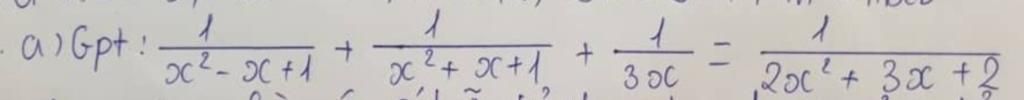 a) Gpt: \frac{1}{x^2 - x + 1} + \frac{1}{x^2 + x + 1} + \frac{1}{3x} = \frac{1}{2x^2 + 3x + 2}